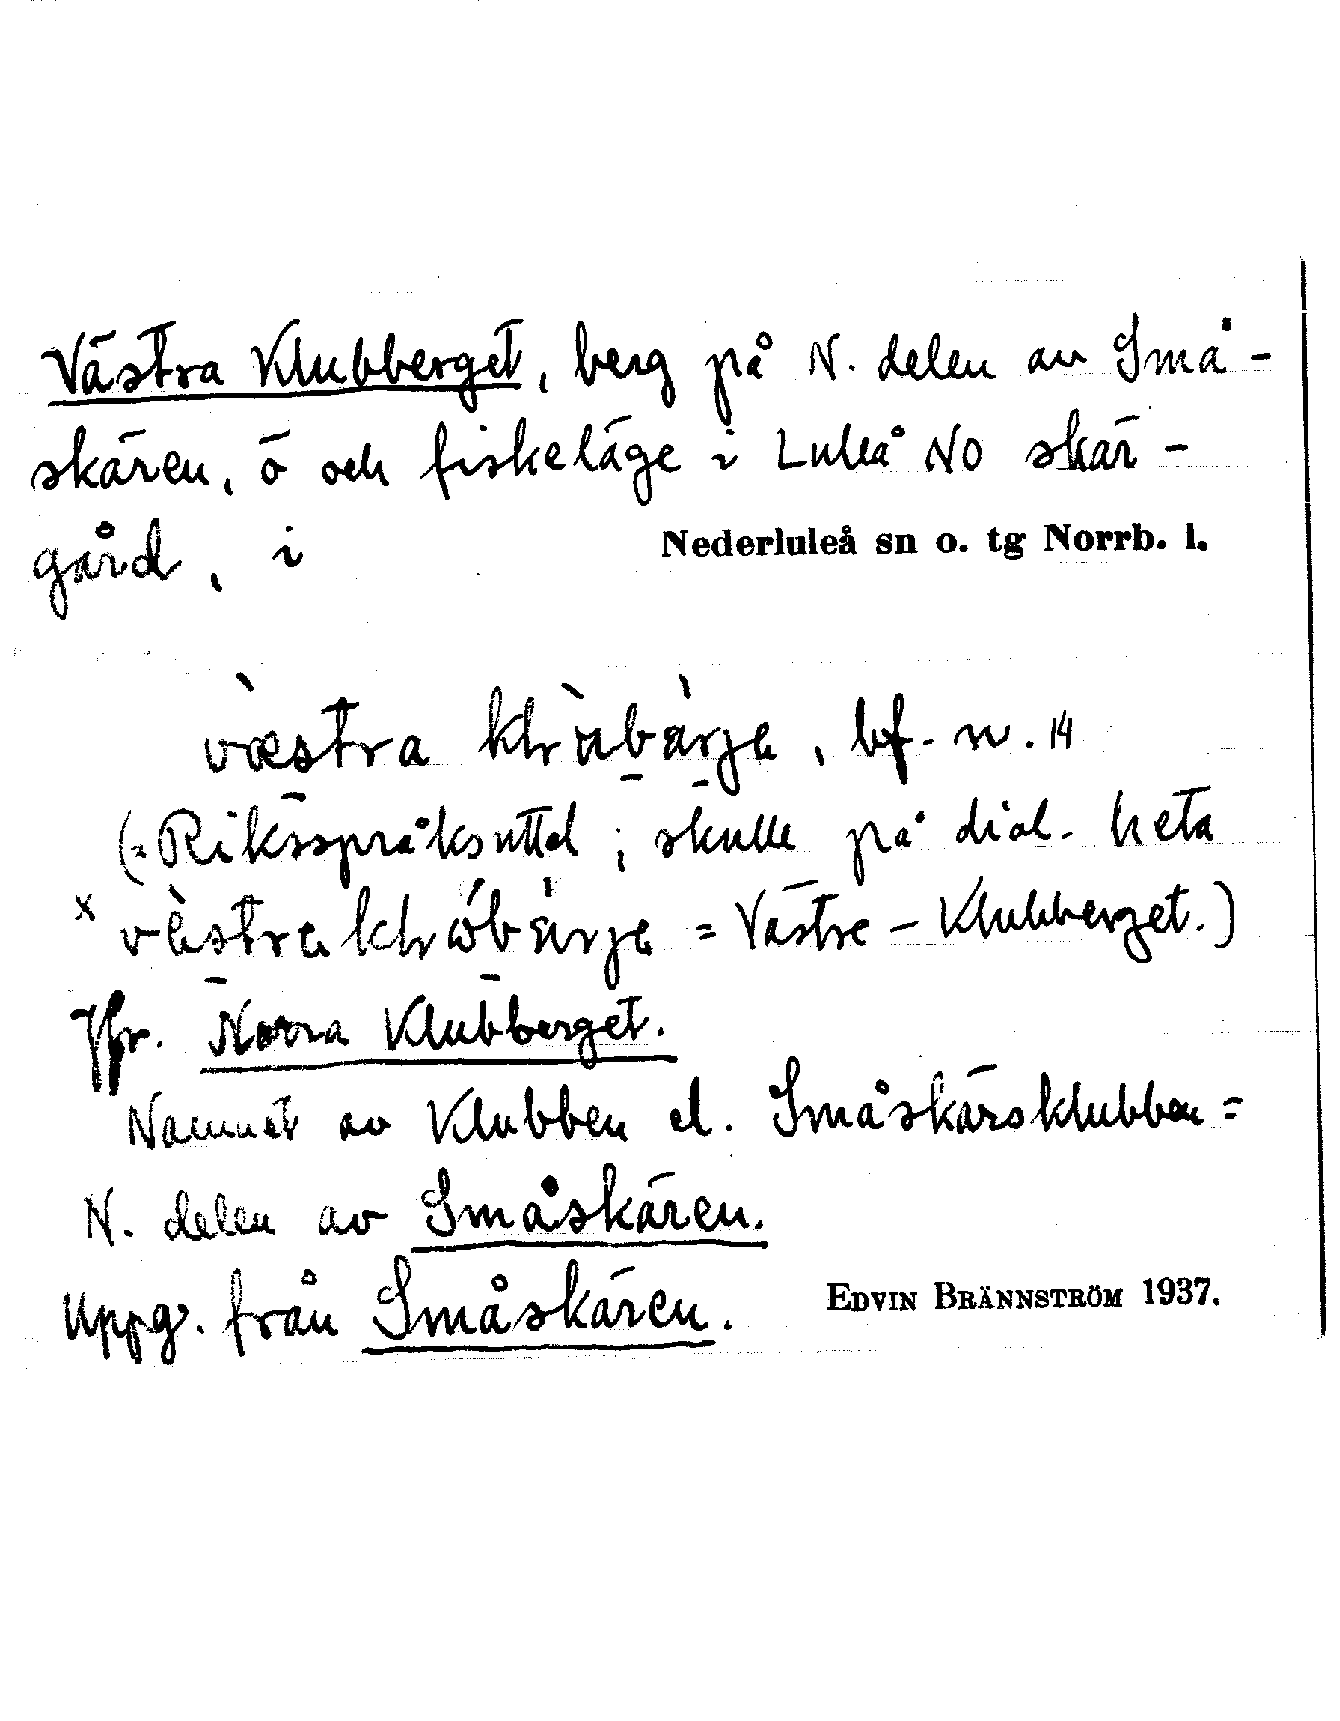 Västra Klubberget, berg på N. delen av Små-
skären, ö och fiskeläge i Luleå NO skär-
gård, i Nederluleå sn o. tg Norrb. l.
bf. n. 14
(= Riksspråksuttal; skulle på dial. heta
= Västre-Klubberget.)
Jfr. Norra Klubberget.
Namnet av Klubben el. Småskärsklubben =
N. delen av Småskären.
Uppg. från Småskären. EDVIN BRÄNNSTRÖM 1937.